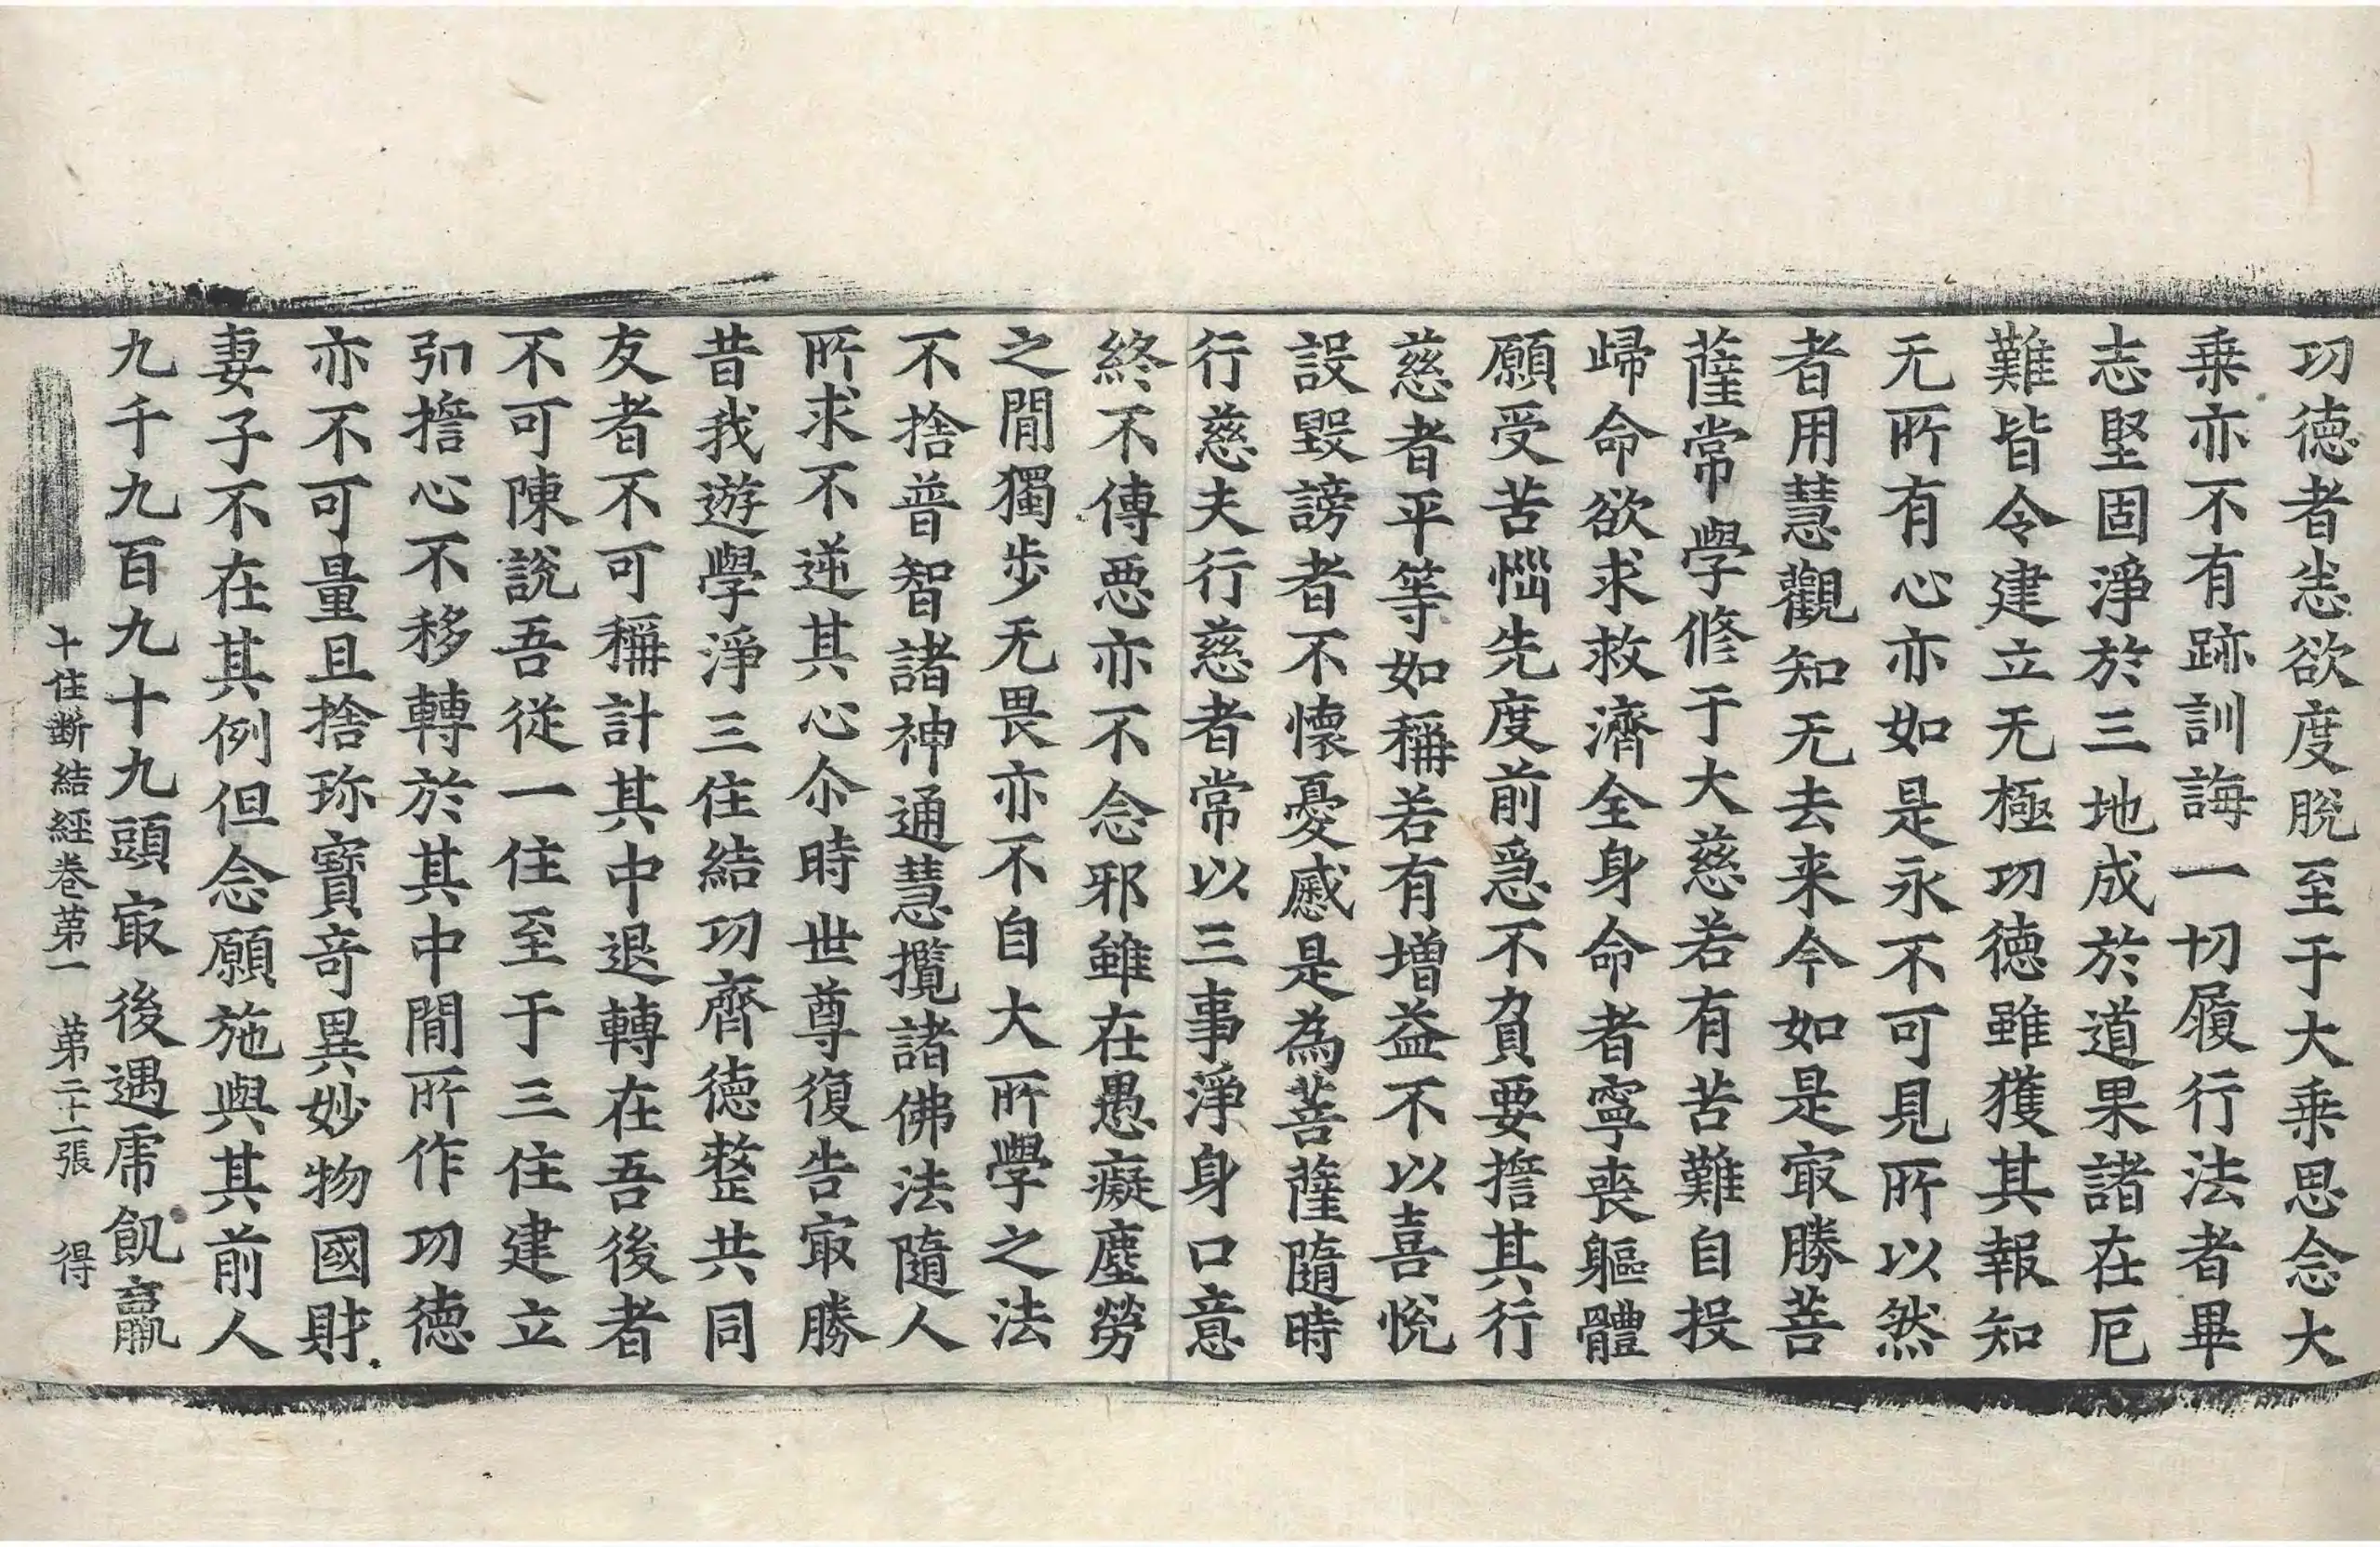 功德者恙欲度脫至于大乗思念大
乗亦不有跡訓誨一切履行法者畢
志堅固淨於三地成於道果諸在厄
難皆令建立无極功德雖獲其報知
无所有心亦如是永不可見所以然
者用慧觀知无去来今如是㝡勝菩
薩常學修于大慈若有苦難自投
歸命欲求救濟全身命者寧喪軀體
願受苦惱先度前爲不負要擔其行
慈者平等如稱若有增益不以喜悅
設毀謗者不懷憂慼是為菩薩隨時
行慈夫行慈者常以三事淨身口意
終不傳惡亦不念邪雖在愚癡塵勞
之閒獨步无畏亦不自大所學之法
不捨普智諸神通慧攬諸佛法隨人
所求不逆其心尒時世尊復告㝡勝
昔我遊學淨三住結功齊德整共同
友者不可稱計其中退轉在吾後者
不可陳說吾從一住至于三住建立
弘擔心不移轉於其中閒所作功德
亦不可量且捨珎寶奇異妙物國財
妻子不在其例但念願施與其前人
九千九百九十九頭㝡後遇虎飢羸
十住斷結經卷第一 第二十一張 得